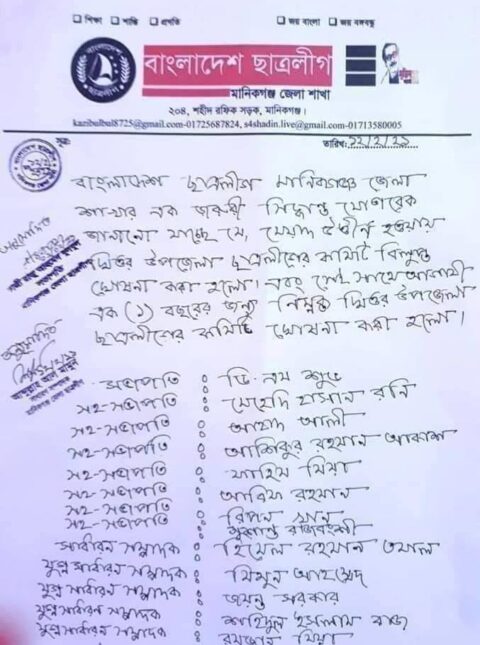 শিক্ষা শান্তি প্রগতি জয় বাংলা জয় বঙ্গবন্ধু
বাংলাদেশ ছাত্রলীগ
মানিকগঞ্জ জেলা শাখা
২০৪, শহীদ রফিক সড়ক, মানিকগঞ্জ।
kazibulbul8725@gmail.com-01725687824, s4shadin.live@gmail.com-01713580005
সূত্র: তারিখ: ১২/২/২১
বাংলাদেশ ছাত্রলীগ মানিকগঞ্জ জেলা
শাখার এক জরুরী সিদ্ধান্ত মোতাবেক
জানানো যাচ্ছে যে, মেয়াদ উত্তীর্ণ হওয়ায়
ঘিওর উপজেলা ছাত্রলীগের কমিটি বিলুপ্ত
ঘোষনা করা হলো। এবং সেই সাথে আগামী
এক (১) বছরের জন্য নিম্নক্ত ঘিওর উপজেলা
ছাত্রলীগের কমিটি ঘোষনা করা হলো।
অনুমোদিত
অনুমোদিত
সভাপতি : ভি.এম শুভ
সহ-সভাপতি : মেহেদি হাসান রনি
সহ-সভাপতি : আহাদ আলী
সহ-সভাপতি : আশিকুর রহমান আকাশ
সহ-সভাপতি : ফাহিম মিয়া
সহ-সভাপতি : আরিফ রহমান
সহ-সভাপতি : রিপন খান
সহ-সভাপতি : সুশান্ত রাজবংশী
সাধারন সম্পাদক : হিমেল রহমান তমাল
যুগ্ম সাধারন সম্পাদক : মিথুন আহমেদ
যুগ্ম সাধারন সম্পাদক : জয়ন্ত সরকার
যুগ্ম সাধারন সম্পাদক : শাহিদুল ইসলাম রাজ
যুগ্ম সাধারন সম্পাদক : রমজান মিয়া